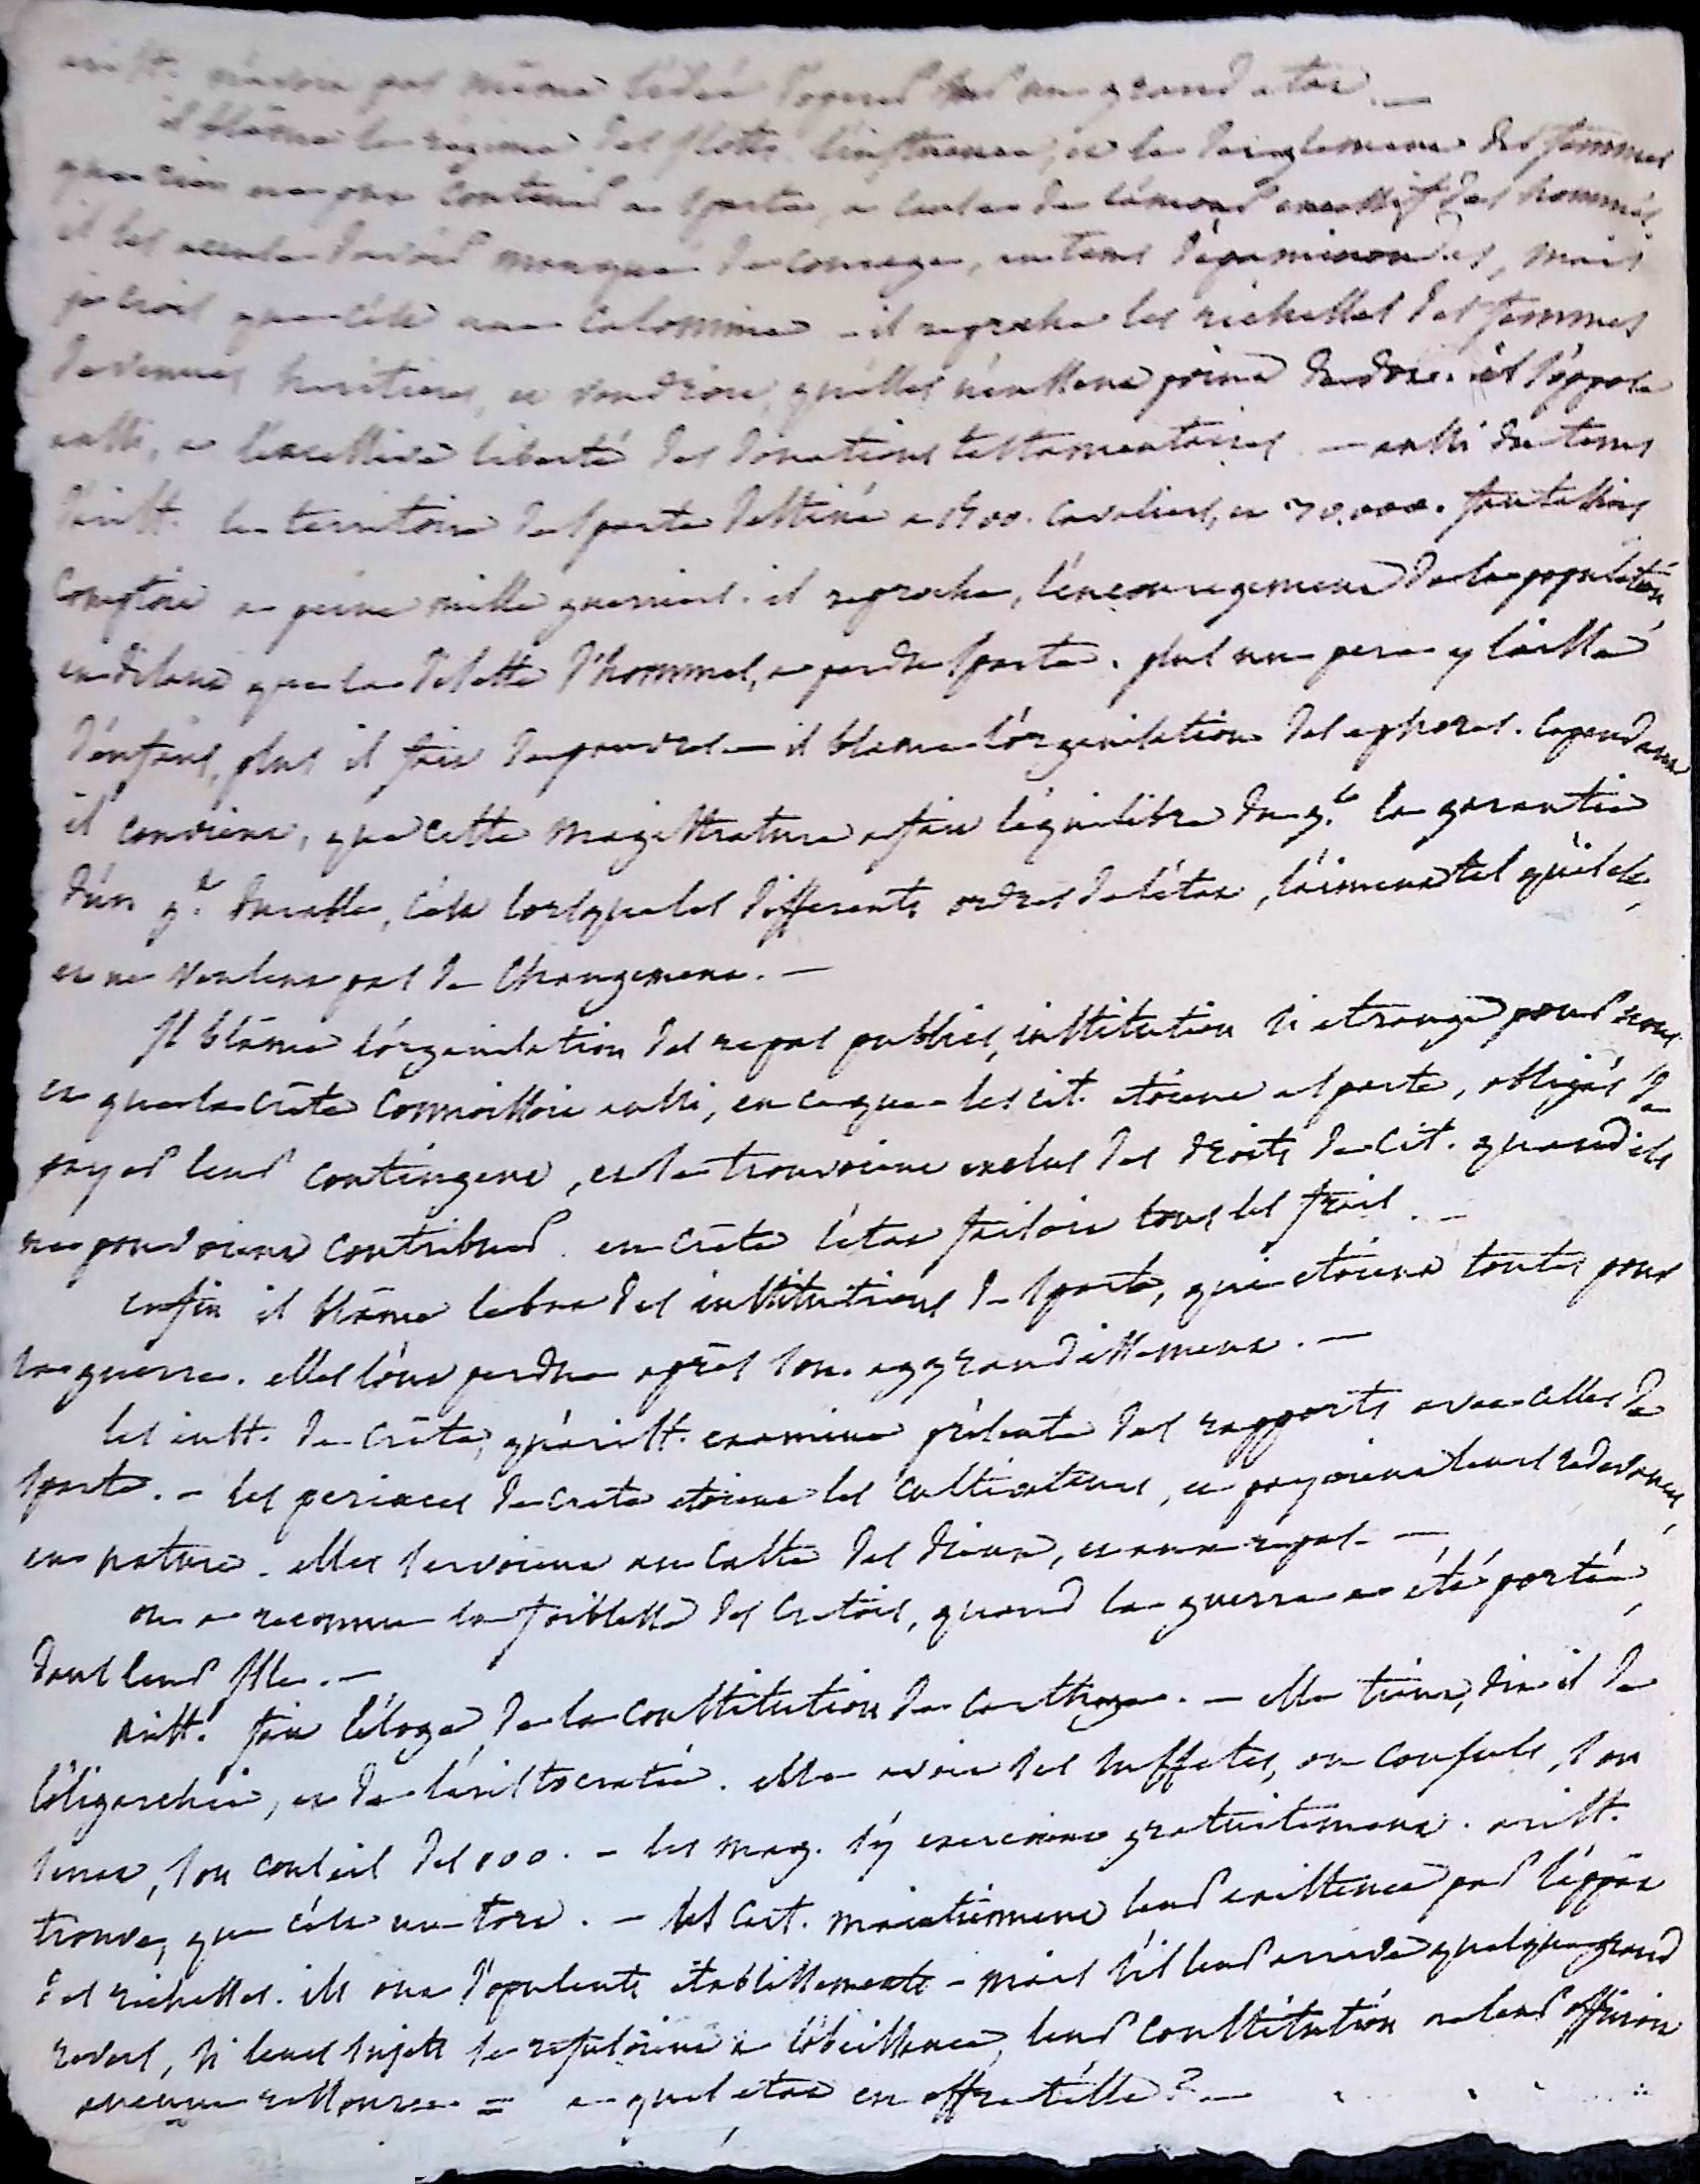 arist. n'avoit pas même l'idée d'agir sur un grand etat. —
il blâme le régime des ilotes, l'influence, et le dereglement des femmes
que rien n'a pu contenir a sparte, a cause de l'amour excessif des hommes,
il les accuse d'avoir manqué de courage, au tems d'epaminondas, mais
je crois que c'est une calomnie - il reproche les richesses des femmes
devenues heritieres, et voudroit, qu'elles n'eussent point de dot. il s'oppose
aussi, a l'excessive liberté des donations testamentaires. — aussi du tems
d'arist. le territoire de sparte destiné a 1500. cavaliers, et 30,000. fantassins
comptoit a peine mille guerriers. il reproche, l'encouragement de la population,
en disant que la disette d'hommes, a perdu sparte. plus un pere y laisse
d'enfans, plus il fait de pauvres — il blame l'organisation des ephores. cependant
il convient, que cette magistrature a fait l'equilibre du g.t la garantie
d'un g.t durable, c'est lorsque les differents ordres de l'etat, l'aiment tel qu'il est,
et ne veulent pas de changement. —
Il blâme l'organisation des repas publics, institution si etrange pour nous
et que la crête connoissoit aussi, en ce que les cit. etoient a sparte, obligés de
payer leur contingent, et se trouvoient exclus des droits de cit. quand ils
ne pouvoient contribuer. en crête l'etat faisoit tous les frais. —
enfin il blâme le but des institutions de sparte, qui etoient toutes pour
la guerre. elles l'ont perdue après son aggrandissement. —
les inst. de crête, qu'arist. examine presente des rapports avec celles de
sparte. - les perieces de crete etoient les cultivateurs, et payoient leurs redevances,
en nature. elles servoient au culte des dieux, et aux repas. —
on a reconnu la foiblesse des cretois, quand la guerre a été portée,
dans leur isle. —
arist. fait l'éloge, de la constitution de carthage. — elle tient, dit-il de
l'oligarchie, et de l'aristocratie. elle avoit des suffetes, ou consuls, son
senat, son conseil des 100. - les mag. s'y exercoient gratuitement. arist.
trouve, que c'est un tort. — les cart. maintiennent leur existence par l'appat
des richesses. ils ont d'opulents établissements - mais s'il leur arrive quelque grand
revers, si leurs sujets se refusoient a l'obeissance, leur constitution ne leur offriroit
aucune ressource = a quel etat en offre t'elle ? —